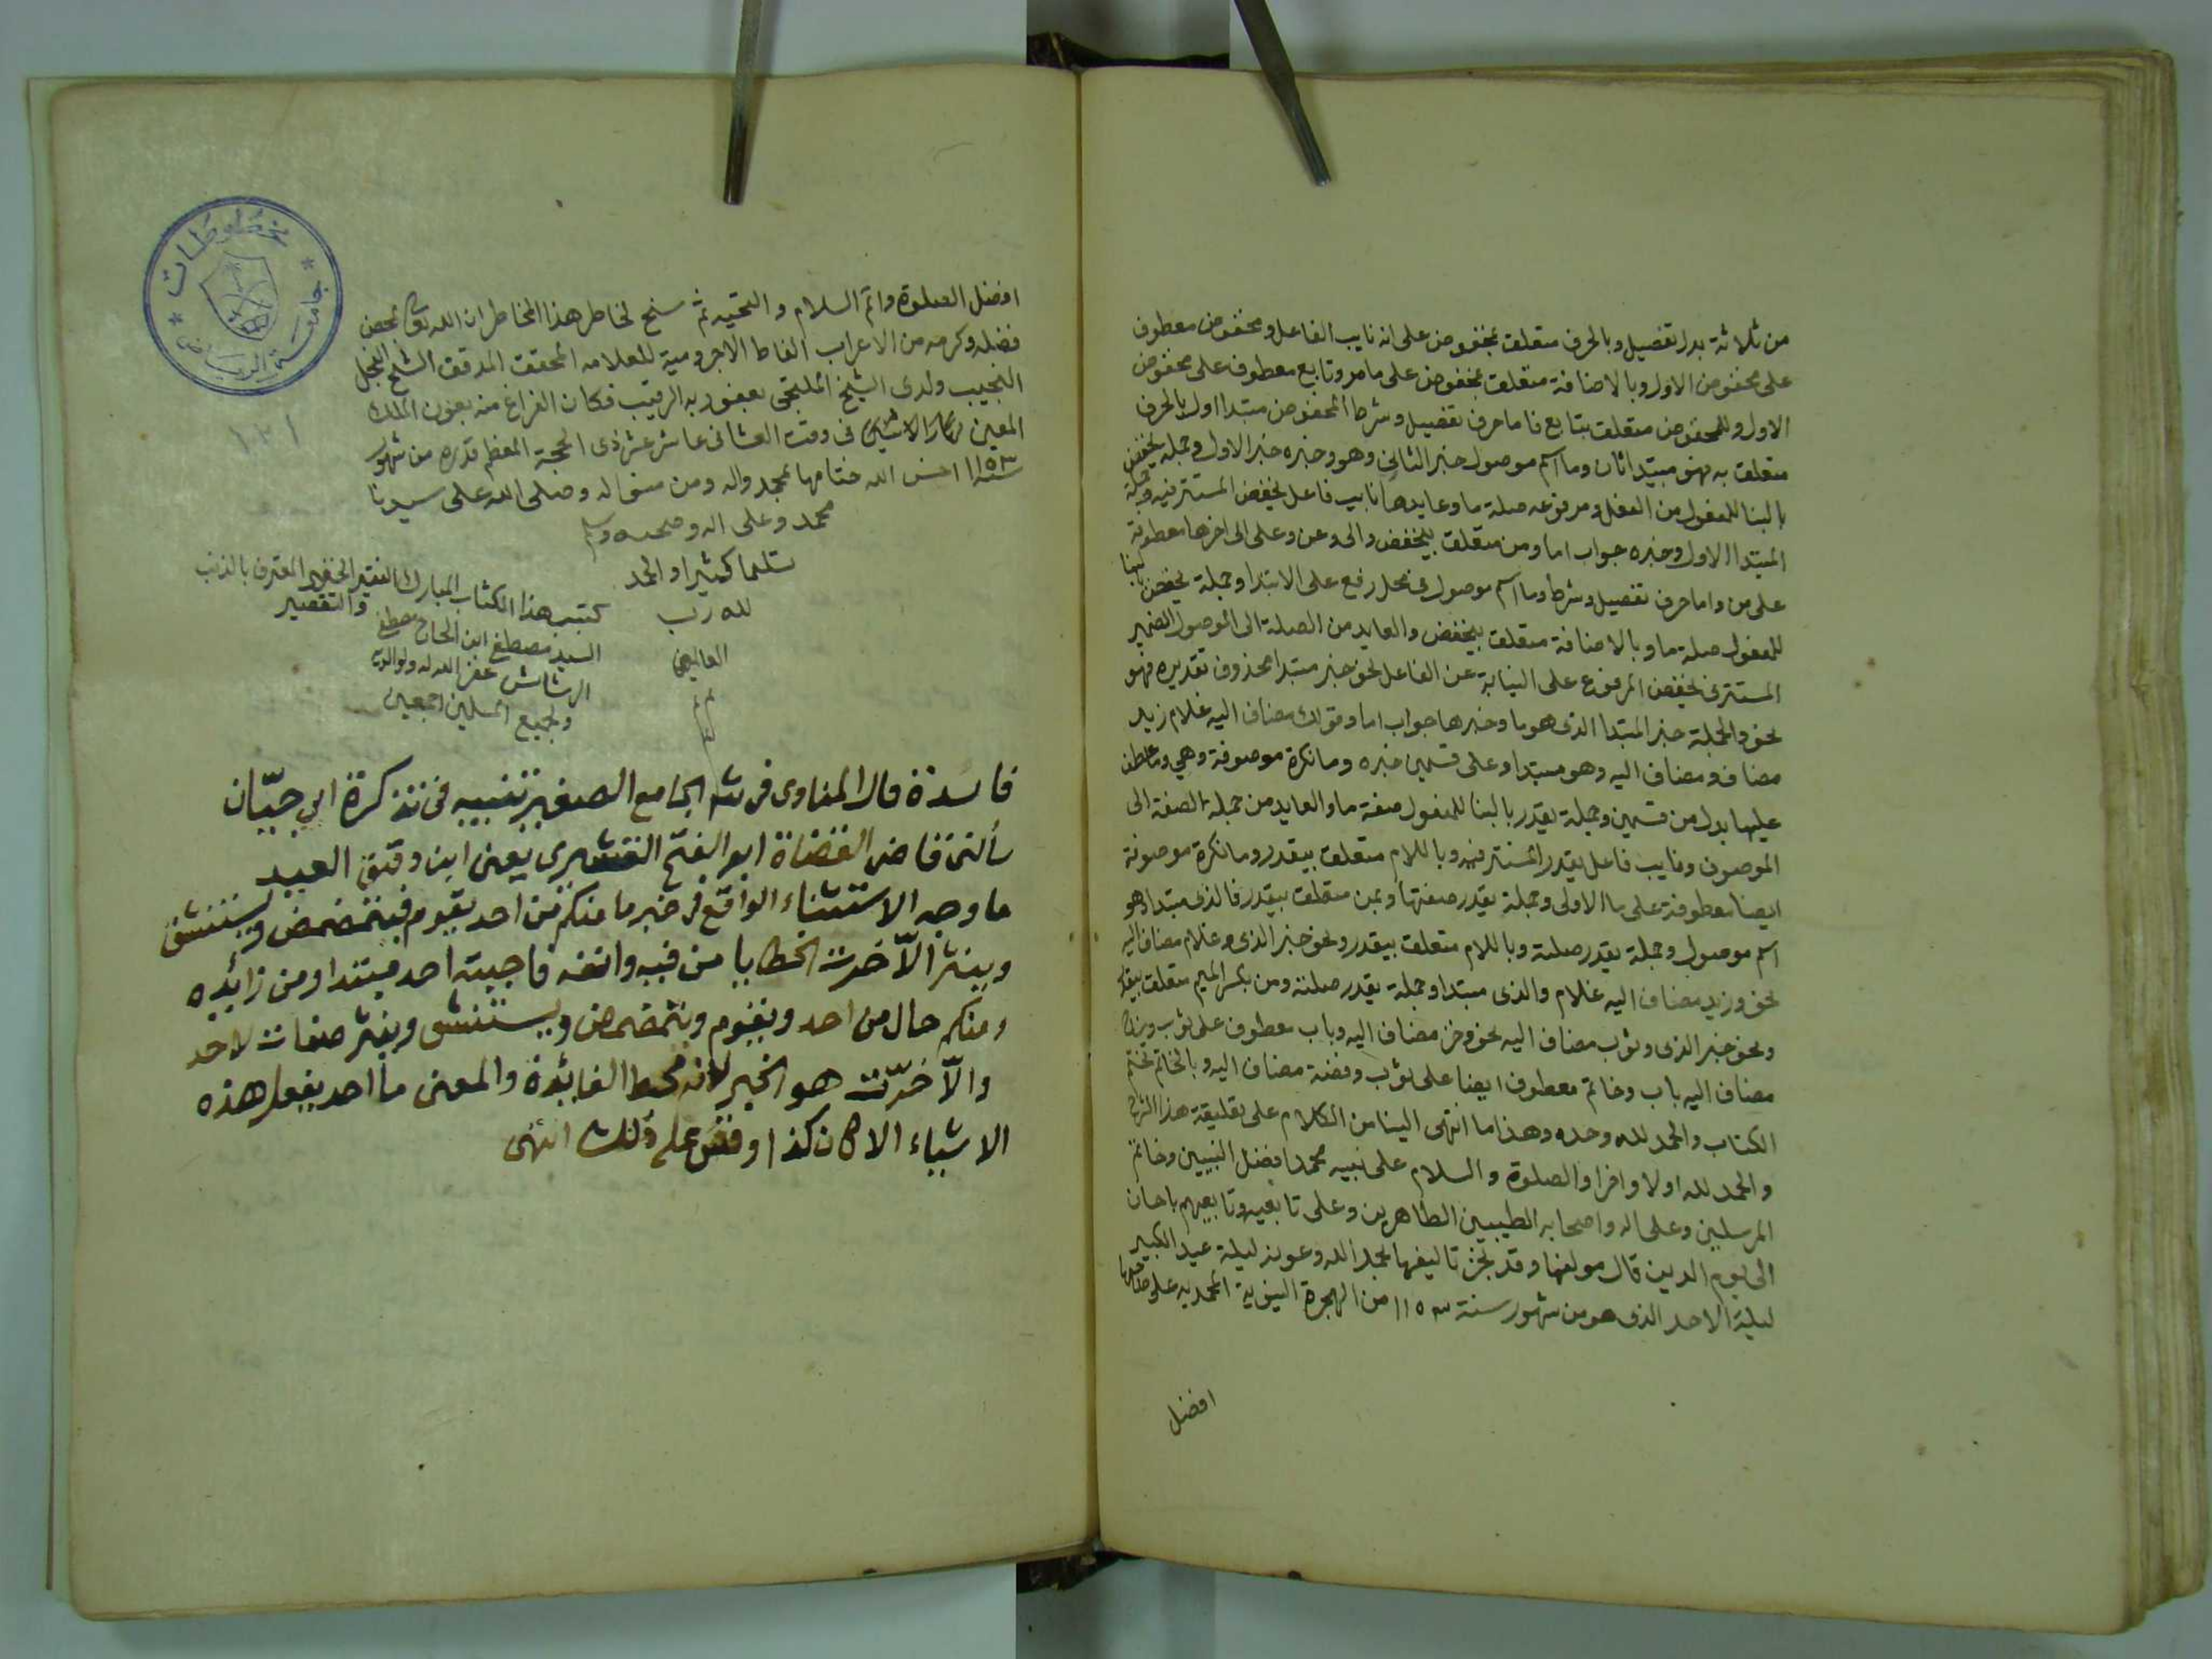 من ثلاثة بدل تفصيل وبالحرف متعلق بمخفوض على انه نايب الفاعل ومخفوض معطوف
على مخفوض الاول وبالاضافة متعلق بمخفوض على مامر وتابع معطوف على مخفوض
الاول وللمخفوض متعلق بتابع فاما حرف تفصيل وشرط المخفوض مبتدا اول بالحرف
متعلق به فهو مبتدا ثان وما اسم موصول خبر الثانى وهو وخبره خبر الاول وجملة يخفض
بالبنا للمفعول من الفعل ومرفوعه صلة ما وعايدها نايب فاعل يخفض المستتر فيه وجملة
المبتدا الاول وخبره جواب اما ومن متعلق بيخفض والى وعن وعلى الى اخرها معطوفة
على من واما حرف تفصيل وشرط وما اسم موصول فى محل رفع على الابتدا وجملة يخفض بالبنا
للمفعول صلة ما وبالاضافة متعلق بيخفض والعايد من الصلة الى الموصول الضمير
المستتر فى يخفض المرفوع على النيابة عن الفاعل نحو خبر مبتدا محذوف تقديره فهو
نحو والجملة خبر المبتدا الذى هو ما وخبرها جواب اما وقولك مضاف اليه غلام زيد
مضاف ومضاف اليه وهو مبتدا وعلى قسمين خبره وما نكرة موصوفة وهي وما عطف
عليها بدل من قسمين وجملة يقدر بالبنا للمفعول صفة ما والعايد من جملة الصفة الى
الموصوف ونايب فاعل يقدر المستتر فيه وباللام متعلق بيقدر وما نكرة موصوفة
ايضا معطوفة على ما الاولى وجملة يقدر صفتها وبمن متعلق بيقدر فالذى مبتدا وهو
اسم موصول وجملة يقدر صلته وباللام متعلق بيقدر ونحو خبر الذى وغلام مضاف اليه
نحو وزيد مضاف اليه غلام والذى مبتدا وجملة يقدر صلته ومن بكسر الميم متعلق بيقدر
ونحو خبر الذى وثوب مضاف اليه نحو وخز مضاف اليه وباب معطوف على ثوب
مضاف اليه باب وخاتم معطوف ايضا على ثوب وفضة مضاف اليه وبالخاتم نختم
الكتاب والحمد لله وحده وهذا ما انتهى الينا من الكلام على تعليقة هذا
والحمد لله اولا واخرا والصلوة والسلام على نبيه محمد افضل النبيين وخاتم
المرسلين وعلى اله واصحابه الطيبين الطاهرين وعلى تابعيه وتابعيهم باحسان
الى يوم الدين قال مولفها وقد نجز تاليفها بحمد الله وعونه ليلة عيد الكبير
ليلة الاحد الذى هو من شهور سنة ١١٥٣ من الهجرة النبوية المحمدية على صاحبها
افضل
افضل الصلوة واتم السلام والتحيه ثم سنح لخاطر هذا المخاطر ان الله تعالى بمحض
فضله وكرمه من الاعراب الفاظ الاجرومية للعلامه المحقق المدقق الشيخ النجل
النجيب ولدى الشيخ بعفو ربه الرقيب فكان الفراغ منه بعون الملك
المعين نهار الاثنين فى وقت العشا فى عاشر عشر ذى الحجة المعظم قدره من شهور
سنة ١١٥٣ احسن الله ختامها بمحمد واله ومن منواله وصلى الله على سيدنا
محمد وعلى اله وصحبه وسلم
تسليما كثيرا والحمد
لله رب
العالمين
كتب هذا الكتاب المبارك الفقير الحقير المعترف بالذنب
والتقصير
السيد مصطفى ابن الحاج مصطفى
غفر الله له ولوالديه
ولجميع المسلمين اجمعين
فائدة قال المناوى فى شرح الجامع الصغير تنبيه فى تذكرة ابي حيّان
سألنى قاضى القضاة ابو الفتح القشيرى يعنى ابن دقيق العيد
ما وجه الاستثناء الواقع فى خبر ما منكم من احد يقوم فيتمضمض ويستنشق
وينثر الّا خرت الخطايا من فيه وانفه فاجبته احد مبتدا ومن زايده
ومنكم حال من احد ويقوم ويتمضمض ويستنشق وينثر صفات لاحد
والّا خرّت هو الخبر لانه محط الفائدة والمعنى ما احد يفعل هذه
الاشياء الا كان كذا وقس على ذلك انتهى
مخطوطات
جامعة الرياض
١٢١